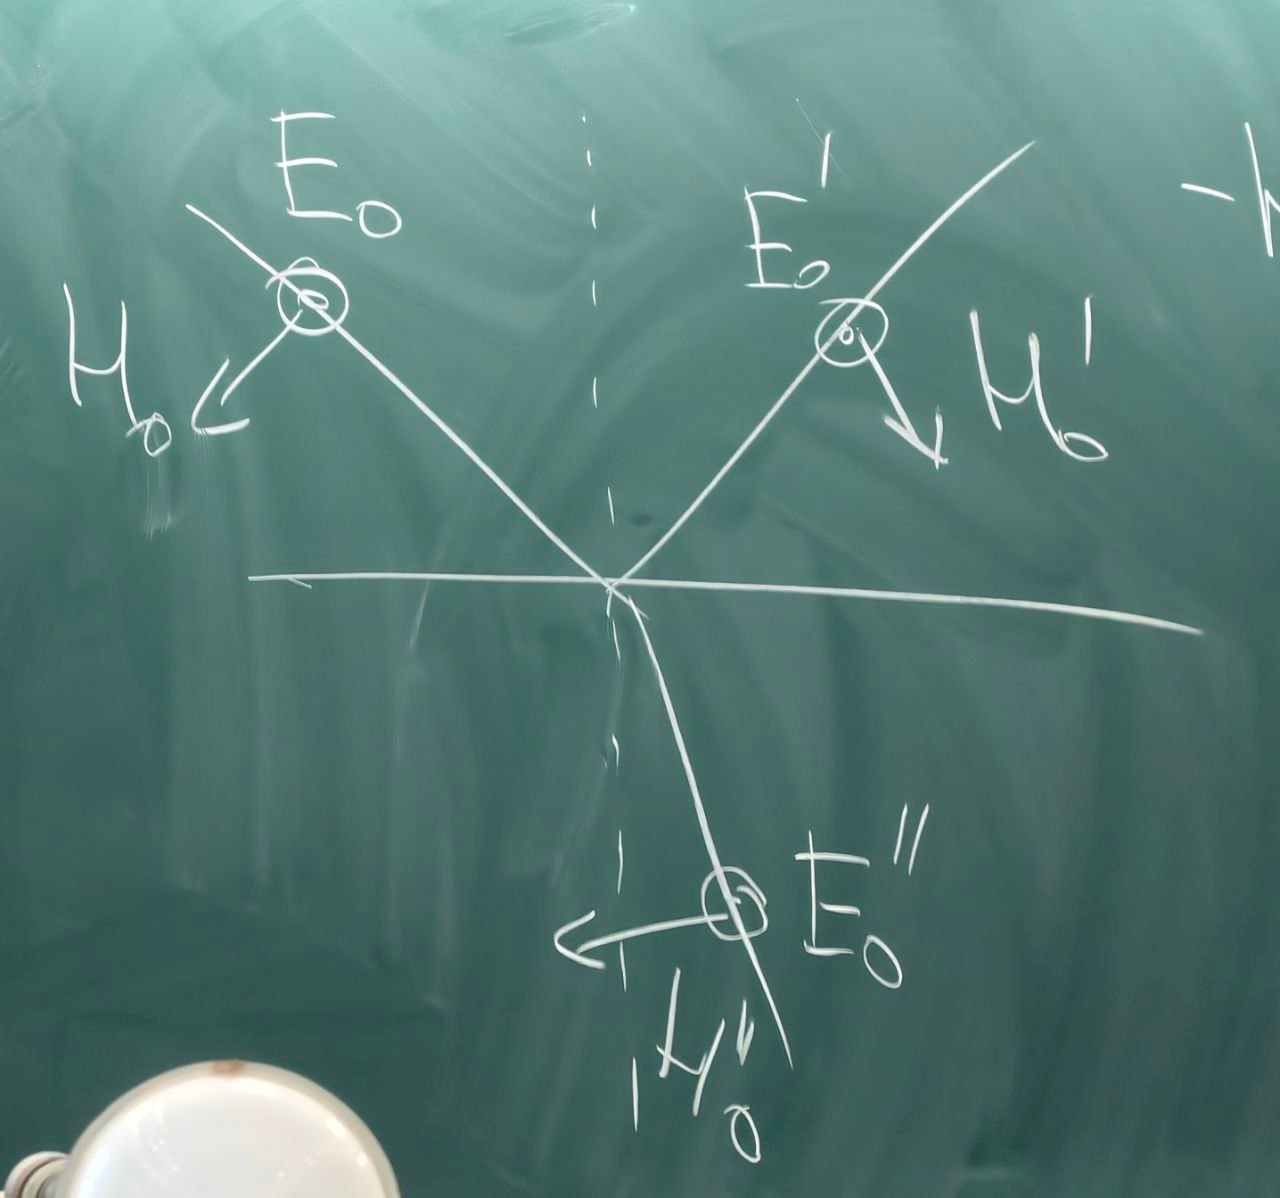 E₀
E₀'
H₀
H₀'
E₀''
H₀''